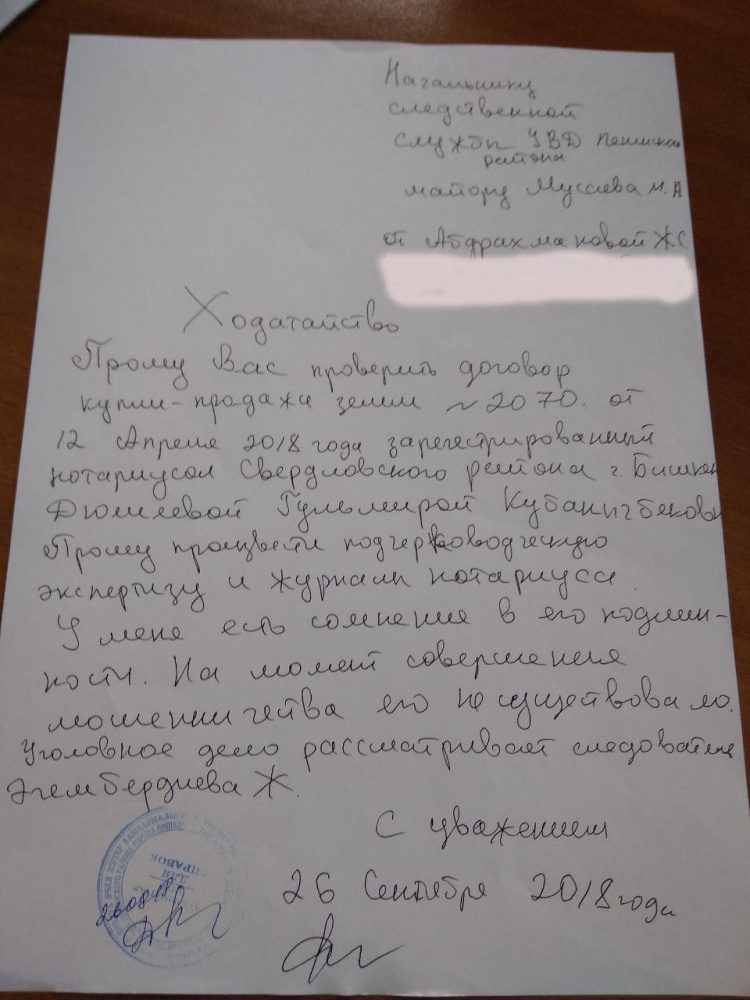 Начальнику
следственной
службы УВД Ленинско
района
майору Мусаева М.А
от Абдрахмановой Ж.С
Ходатайство
Прошу Вас проверить договор
купли-продажи земли №2070. от
12 Апреля 2018 года зарегестрированный
нотариусом Свердловского района г. Бишкек
Дюшеевой Гульмирой Кубанычбековн
Прошу произвести подчерководческую
экспертизу и журнали нотариуса
У меня есть сомнение в его подлин-
ности. На момент совершения
мошенничества его не существовало.
Уголовное дело рассматривает следователь
Эгембердиева Ж.
С уважением
26 Сентября 2018 года
ДЛЯ
СПРАВОК